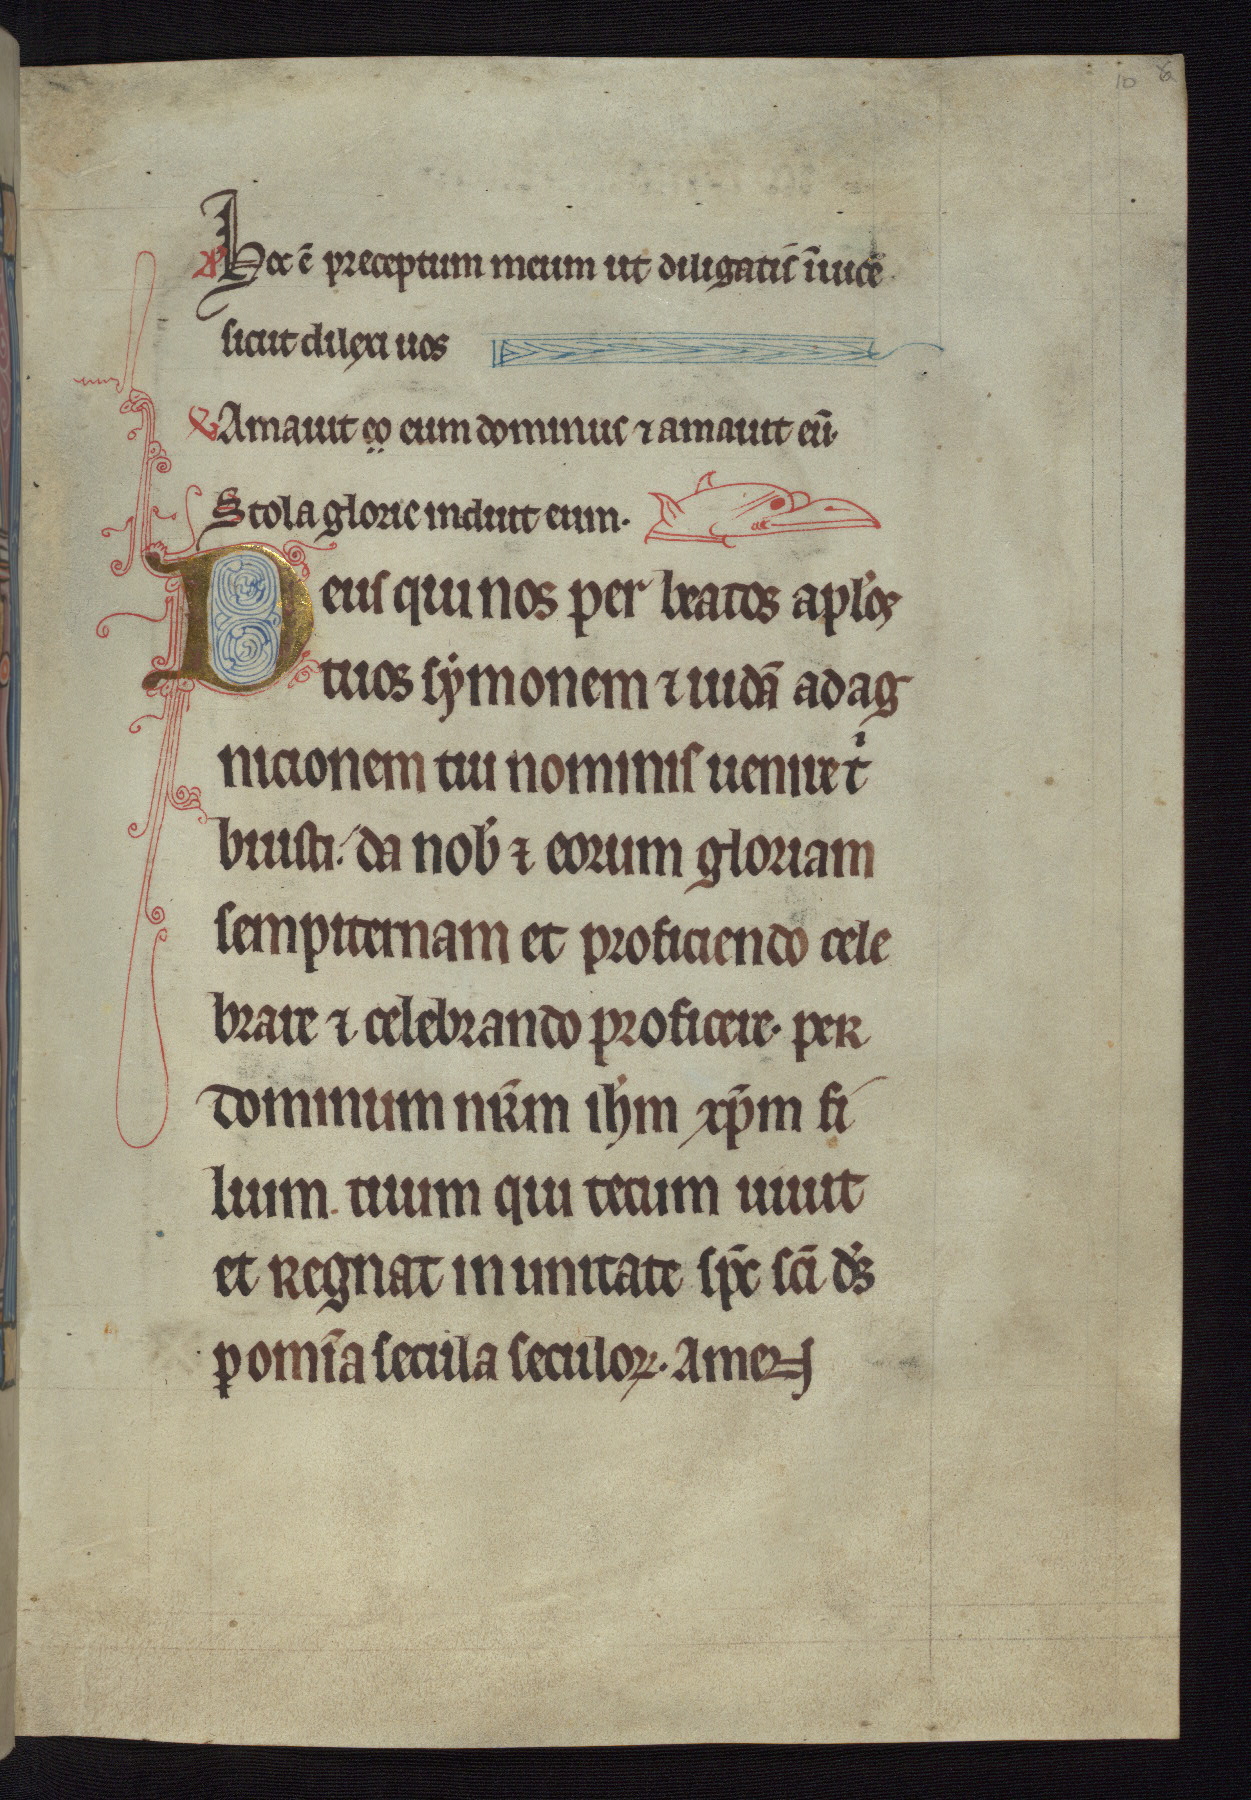 Hoc ē preceptum meum ut diligatis īuicē
sicut dilexi uos
Amauit eo eum dominus ⁊ amauit eū.
Stola glorie induit eum.
Deus qui nos per beatos apl'os
tuos symonem ⁊ iudā ad ag
nicionem tui nominis uenire t
buisti. da nob' ⁊ eorum gloriam
sempiternam et proficiendo cele
brare ⁊ celebrando proficere. per
dominum nr̄m ih'm xp̄m fi
lium. tuum qui tecum uiuit
et regnat in unitate sp̄c sc̄i d's
ꝑ omīa secula seculoꝝ. Amen
10